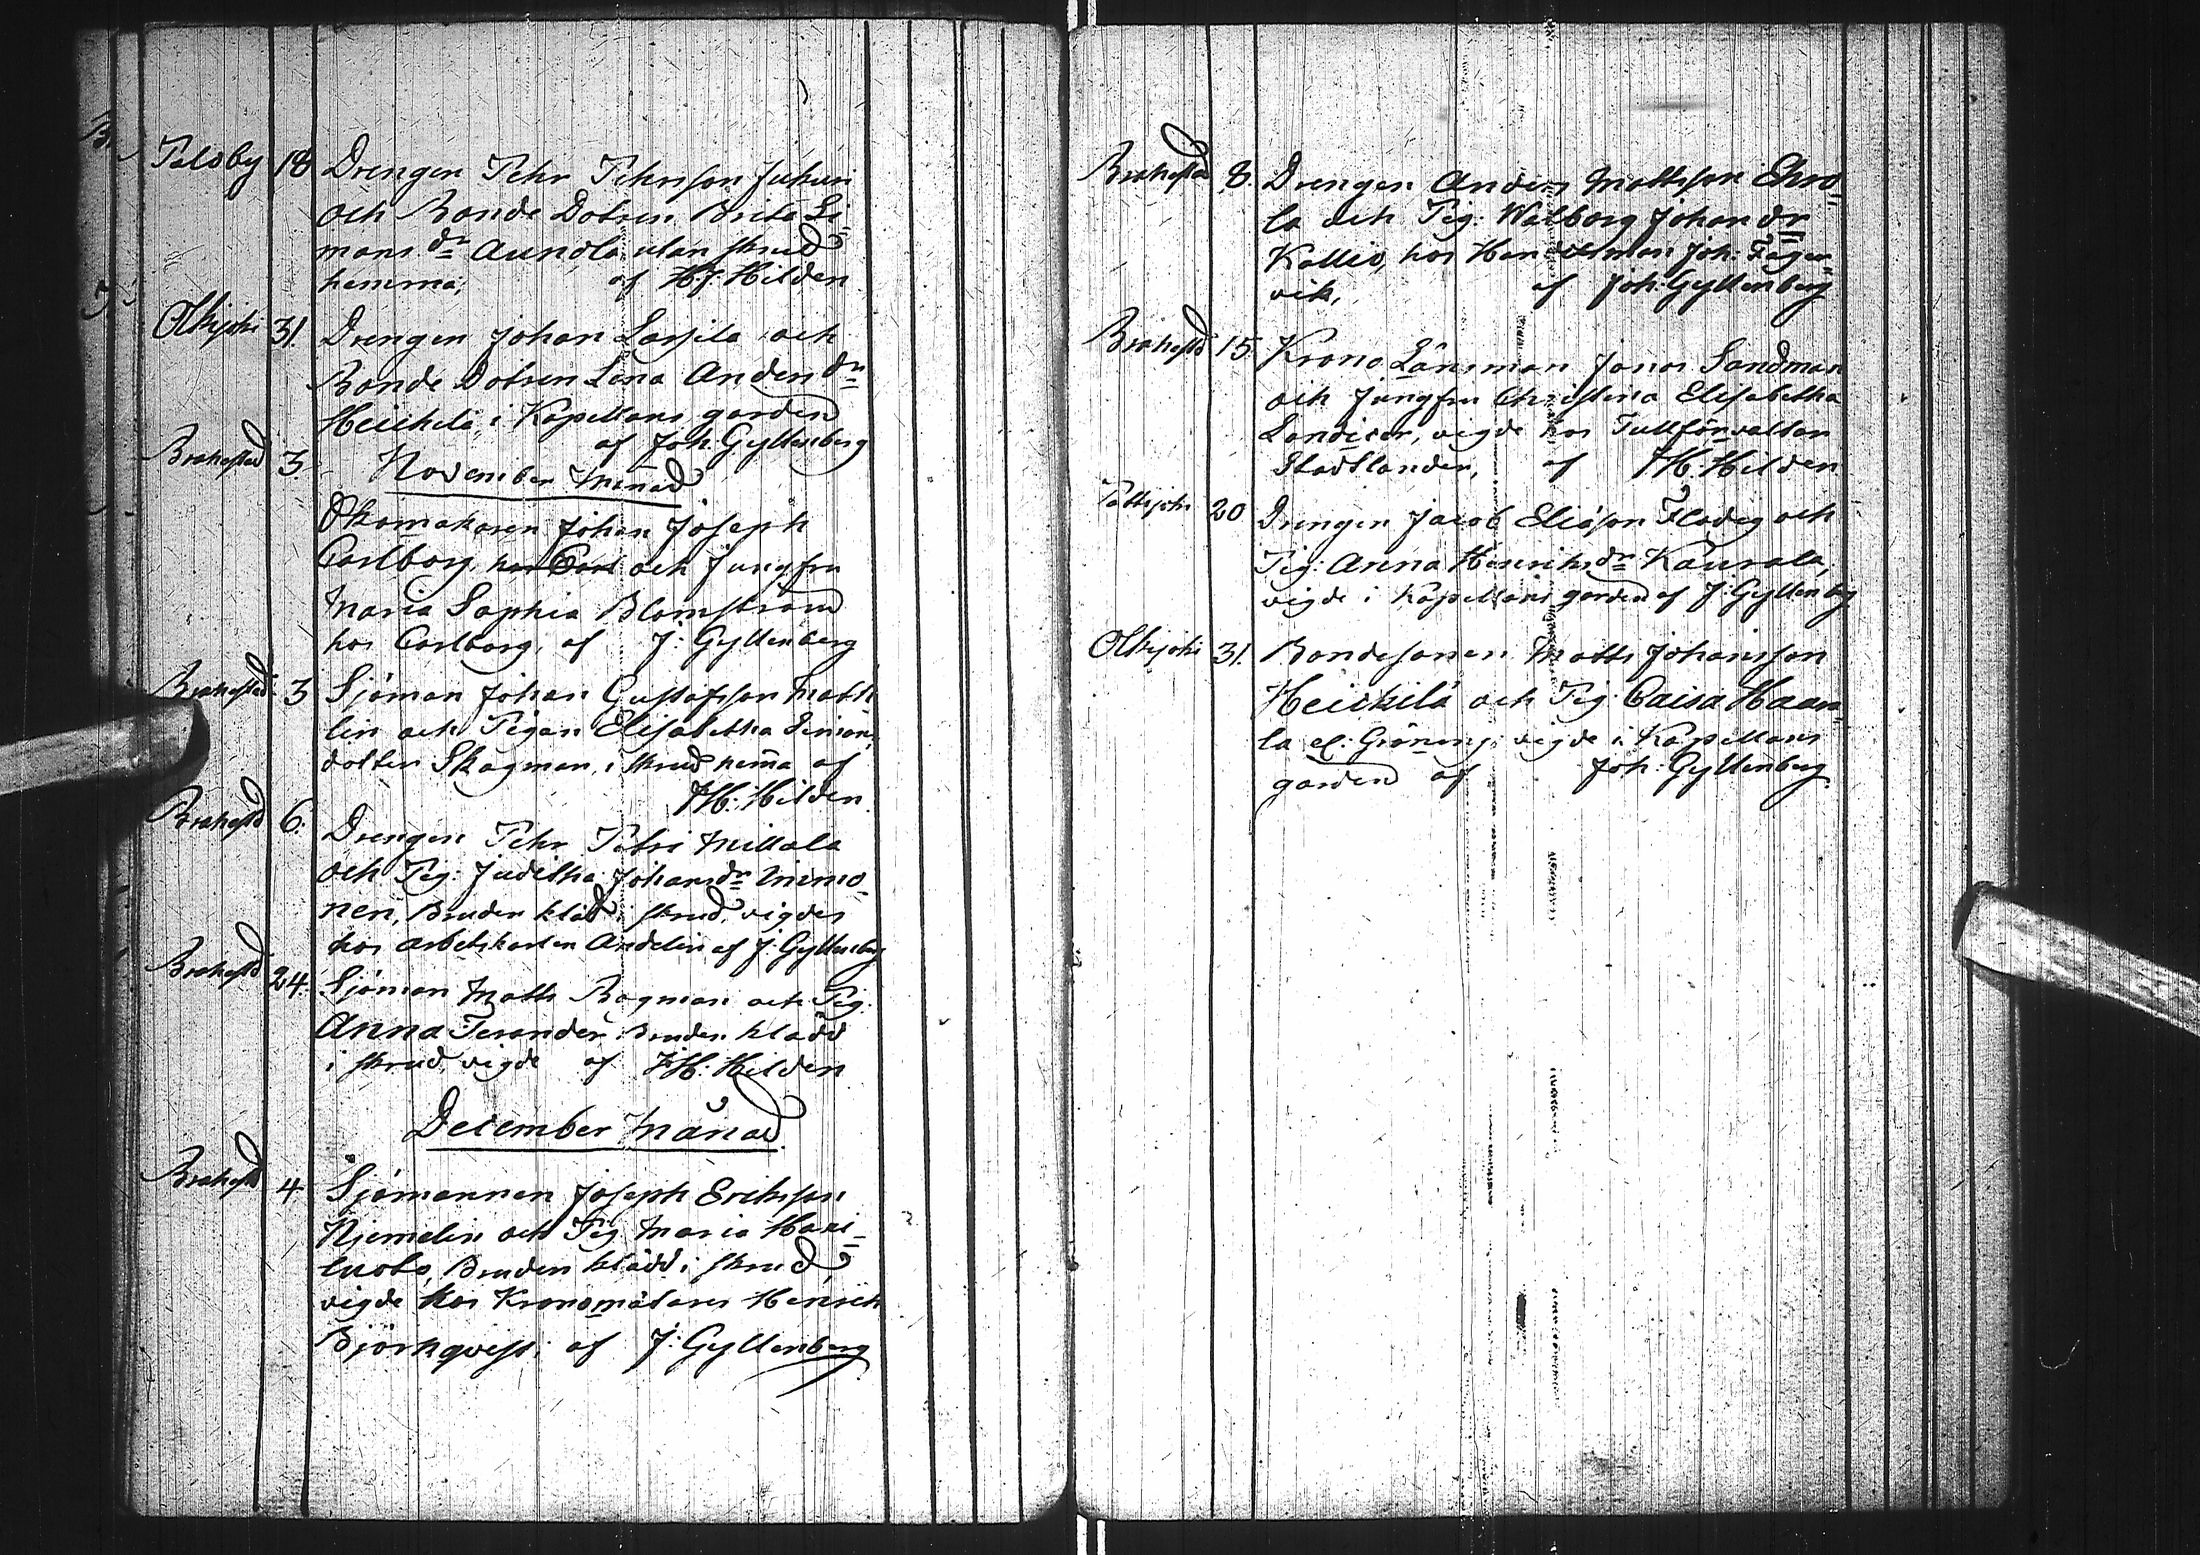 Paloby 18 Drengen Pehr Pehrsson Juhuri
och Bonde Dotren Brita Si=
mons dr Aunola utan skrud
hemma, af H J: Hilden
Olkijoki 31. Drengen Johan Lassila och
Bonde Dotren Lena Anders dr
Heickilä, i Kapellans garden
af Joh: Gyllenberg
Brahestad 3. November Månad
Skomakaren Johan Joseph
Carlborg, hos Carl och Jungfru
Maria Sophia Blomström
hos Carlborg, af J: Gyllenberg
Brahestad 3 Sjöman Johan Gustafsson Math
lin och Pigan Elisabetha Simons
dotter Skagman, i skrud hema af
J H: Hilden
Brahestad 6. Drengen Pehr Petri Millala
och Pig: Juditha Johans dr Mimo=
nen, Bruden klädd i skrud, vigdes
hos arbetskarlen Andelin af J: Gyllenberg
Brahestad 24. Sjöman Matts Bogman och Pig:
Anna Terander Bruden klädd
i skrud, vigde af J H: Hilden
December Månad.
Brahestad 4 Sjömannen Joseph Eriksson
Njemelin och Pig Maria Hari=
luoto, Bruden klädd i skrud,
vigde hos Kronomätaren Henrich
Björkqvist, af J: Gyllenberg
Brahestad 8. Drengen Anders Mattsson Ehro=
la och Pig: Walborg Johan dr
Kallio, hos Handelsman Joh: Fager=
vik, af Joh: Gyllenberg
Brahestad 15. Krono Länsman Jonas Sandman
och Jungfru Christina Elisabetha
vigde hos Tullförvaltar
Stadtlander, af J H: Hilden
Pattijoki 20 Drengen Jacob Eliasson Flodig och
Pig: Anna Henriks dr Kaurala,
vigde i Kapellans garden af J: Gyllenberg
Olkijoki 31. Bondesonen Matts Johansson
Heickilä och Pig Caisa Haara=
la el: Gröning, vigde i Kapellans
garden af Joh: Gyllenberg